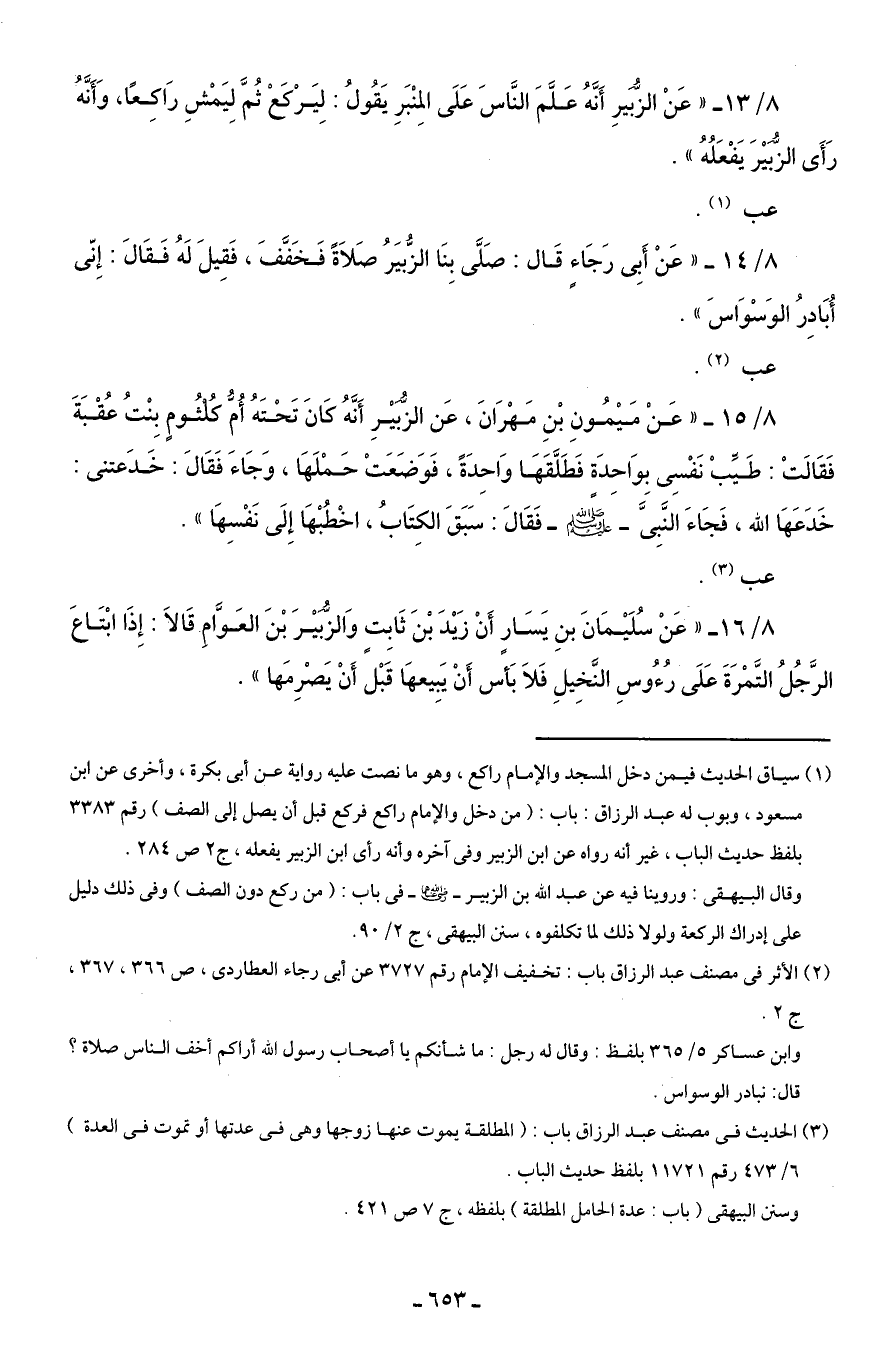 ٨/ ١٣ـ « عَنْ الزُّبَيرِ أَنَّهُ عَلَّمَ النَّاسَ عَلَى المِنْبَرِ يَقُولُ : لِيَرْكَعْ ثُمَّ لِيَمْشِ رَاكِعًا، وَأَنَّهُ
رَأَى الزُّبَيْرَ يَفْعَلُهُ » .
عب (١) .
٨/ ١٤ ـ « عَنْ أَبِى رَجَاءٍ قَال : صَلَّى بِنَا الزُّبَيَرُ صَلاَةً فَخَفَّفَ ، فَقِيلَ لَهُ فَقَالَ : إِنِّى
أُبَادِرُ الوَسْوَاسَ » .
عب (٢) .
٨/ ١٥ ـ « عَنْ مَيْمُونِ بْنِ مَهْرَانَ ، عَن الزُّبَيْرِ أَنَّهُ كَانَ تَحْتَهُ أُمُّ كُلْثُومٍ بِنْتُ عُقْبَةَ
فَقَالَتْ : طَيِّبْ نَفْسِى بِوَاحِدَةٍ فَطَلَّقَهَا وَاحِدَةً ، فَوَضَعَتْ حَمْلَهَا ، وَجَاءَ فَقَالَ : خَدَعتنى :
خَدَعَهَا الله ، فَجَاءَ النَّبِىَّ ـ ﷺ ـ فَقَالَ : سَبَقَ الكِتَابُ ، اخْطُبْهَا إِلَى نَفْسِهَا » .
عب (٣) .
٨/ ١٦ـ « عَنْ سُلَيْمَانَ بنِ يَسَارٍ أَنْ زَيْدَ بْنَ ثَابِتٍ وَالزُّبَيْرَ بْنَ العَوَّامِ قَالاَ : إِذَا ابْتَاعَ
الرَّجُلُ التَّمْرَةَ عَلَى رُءُوسِ النَّخِيلِ فَلاَ بَأس أَنْ يَبِيعهَا قَبْل أَنْ يَصْرِمَها » .
(١) سياق الحديث فيمن دخل المسجد والإمام راكع ، وهو ما نصت عليه رواية عن أبى بكرة ، وأخرى عن ابن
مسعود ، وبوب له عبد الرزاق : باب : ( من دخل والإمام راكع فركع قبل أن يصل إلى الصف ) رقم ٣٣٨٣
بلفظ حديث الباب ، غير أنه رواه عن ابن الزبير وفى آخره وأنه رأى ابن الزبير يفعله ، ج٢ ص ٢٨٤ .
وقال البيهقى : وروينا فيه عن عبد الله بن الزبير ـ رضي الله عنهما ـ فى باب : ( من ركع دون الصف ) وفى ذلك دليل
على إدراك الركعة ولولا ذلك لما تكلفوه ، سنن البيهقى ، ج ٢/ ٩٠.
(٢) الأثر فى مصنف عبد الرزاق باب : تخفيف الإمام رقم ٣٧٢٧ عن أبى رجاء العطاردى ، ص ٣٦٦ ، ٣٦٧ ،
ج ٢ .
وابن عساكر ٥/ ٣٦٥ بلفظ : وقال له رجل : ما شأنكم يا أصحاب رسول الله أراكم أخف الناس صلاة ؟
قال: نبادر الوسواس .
(٣) الحديث فى مصنف عبد الرزاق باب : ( المطلقة يموت عنها زوجها وهى فى عدتها أو تموت فى العدة )
٦/ ٤٧٣ رقم ١١٧٢١ بلفظ حديث الباب .
وسنن البيهقى ( باب : عدة الحامل المطلقة ) بلفظه ، ج ٧ ص ٤٢١ .
ـ ٦٥٣ ـ